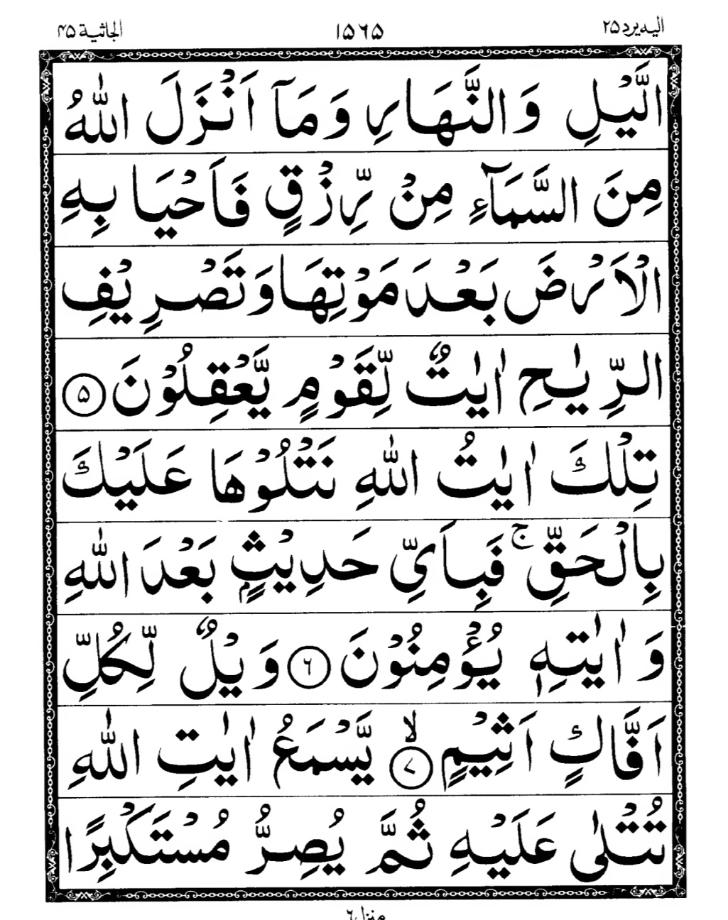 الیہ یرد ۲۵ ۱۵۶۵ الجاثیة ۴۵
الَّيْلِ وَالنَّهَارِ وَمَاۤ اَنْزَلَ اللّٰهُ
مِنَ السَّمَآءِ مِنْ رِّزْقٍ فَاَحْيَا بِهِ
الْاَرْضَ بَعْدَ مَوْتِهَا وَتَصْرِيْفِ
الرِّيٰحِ اٰيٰتٌ لِّقَوْمٍ يَّعْقِلُوْنَ ۵
تِلْكَ اٰيٰتُ اللّٰهِ نَتْلُوْهَا عَلَيْكَ
بِالْحَقِّ ۚ فَبِاَيِّ حَدِيْثٍۭ بَعْدَ اللّٰهِ
وَاٰيٰتِهٖ يُؤْمِنُوْنَ ۶ وَيْلٌ لِّكُلِّ
اَفَّاكٍ اَثِيْمٍ ۙ ۷ يَّسْمَعُ اٰيٰتِ اللّٰهِ
تُتْلٰى عَلَيْهِ ثُمَّ يُصِرُّ مُسْتَكْبِرًا
منزل ۶